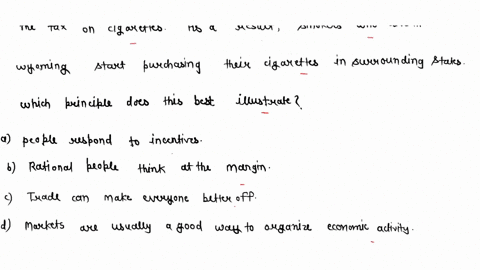 The tax on cigarettes. As a result, smokers who
wyoming start purchasing their cigarettes in surrounding states.
which principle does this best illustrate?
a) people respond to incentives.
b) Rational people think at the margin.
c) Trade can make everyone better off.
d) Markets are usually a good way to organize economic activity.